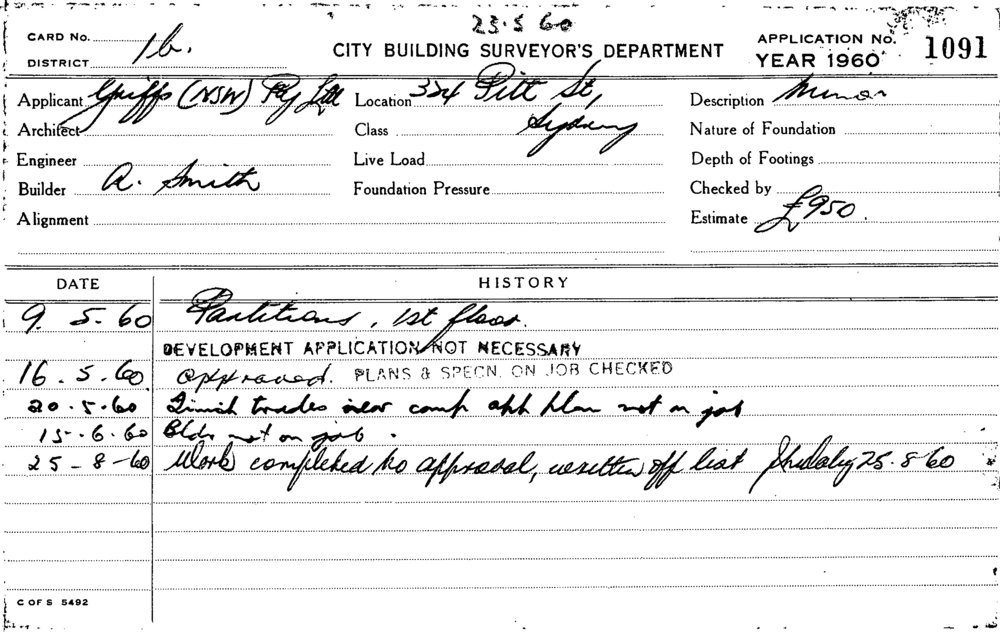 23.5.60
CARD No. 1b.
DISTRICT
CITY BUILDING SURVEYOR'S DEPARTMENT
APPLICATION No. 1091
YEAR 1960
Applicant Griffs (NSW) Pty Ltd Location 324 Pitt St, Description Minor
Architect Class Sydney Nature of Foundation
Engineer Live Load Depth of Footings
Builder A. Smith Foundation Pressure Checked by
Alignment Estimate £950.
DATE HISTORY
9. 5. 60 Partitions, 1st floor.
DEVELOPMENT APPLICATION NOT NECESSARY
16. 5. 60 approved. PLANS & SPECN. ON JOB CHECKED
20. 5. 60 Finish trades near comp app plan not on job
15. 6. 60 Bldr not on job.
25-8-60 Work completed to approval, written off list 25.8.60
C OF S 5492